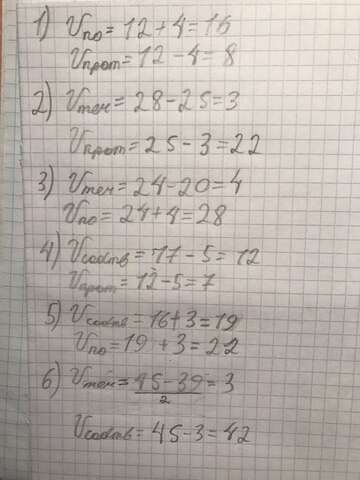 1) Vпо = 12 + 4 = 16
Vпрот = 12 - 4 = 8
2) Vтеч = 28 - 25 = 3
Vпрот = 25 - 3 = 22
3) Vтеч = 24 - 20 = 4
Vпо = 24 + 4 = 28
4) Vсобств = 17 - 5 = 12
Vпрот = 12 - 5 = 7
5) Vсобств = 16 + 3 = 19
Vпо = 19 + 3 = 22
6) Vтеч = 45 - 39 / 2 = 3
Vсобств = 45 - 3 = 42